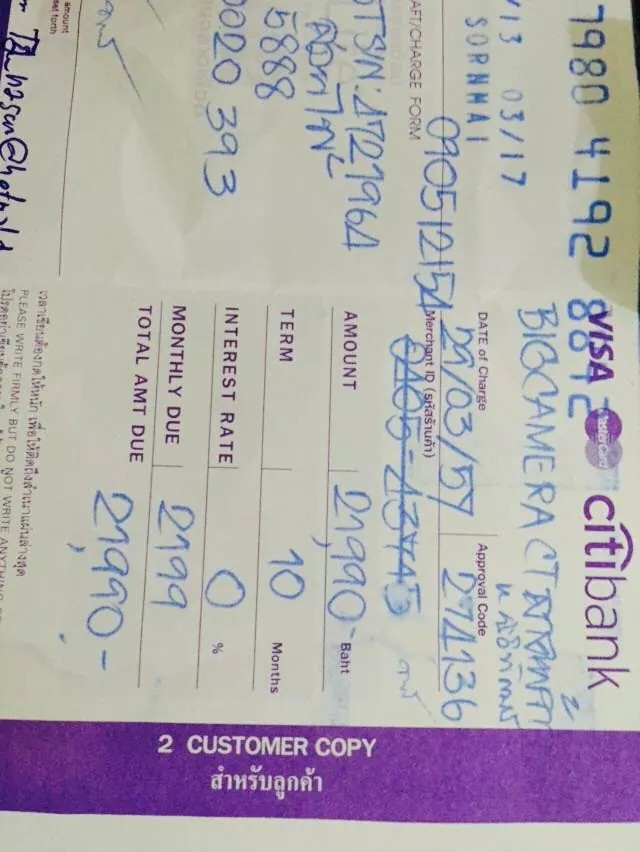 7980 4192 8812
/13 03/17
SORNHAI
VISA MasterCard citibank
BIGCAMERA CT
AFT/CHARGE FORM
DATE of Charge
29/03/57
Approval Code
274136
0905121154
Merchant ID (รหัสร้านค้า)
5888
0020 393
AMOUNT 21,990 Baht
TERM 10 Months
INTEREST RATE 0 %
MONTHLY DUE 2199
TOTAL AMT DUE 21,990.-
amount
set forth
เวลาเขียนต้องกดให้หนัก เพื่อให้ติดถึงสำเนาแผ่นล่างสุด
PLEASE WRITE FIRMLY BUT DO NOT WRITE ANYTHING
2 CUSTOMER COPY
สำหรับลูกค้า